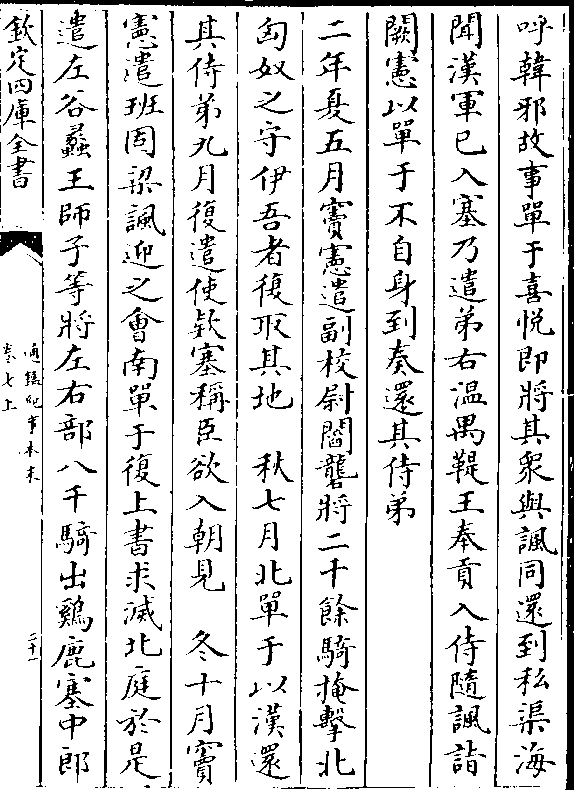 呼韓邪故事單于喜悦即將其衆與諷同還到私渠海
聞漢軍已入塞乃遣弟右温禺鞮王奉貢入侍隨諷詣
闕憲以單于不自身到奏還其侍弟
二年夏五月竇憲遣副校尉閻礱將二千餘騎掩擊北
匈奴之守伊吾者復取其地　秋七月北單于以漢還
其侍弟九月復遣使欵塞稱臣欲入朝見　冬十月竇
憲遣班固梁諷迎之會南單于復上書求滅北庭於是
遣左谷蠡王師子等將左右部八千騎出鷄鹿塞中郎
欽定四庫全書
通鑑紀事本末
卷七上
二十一